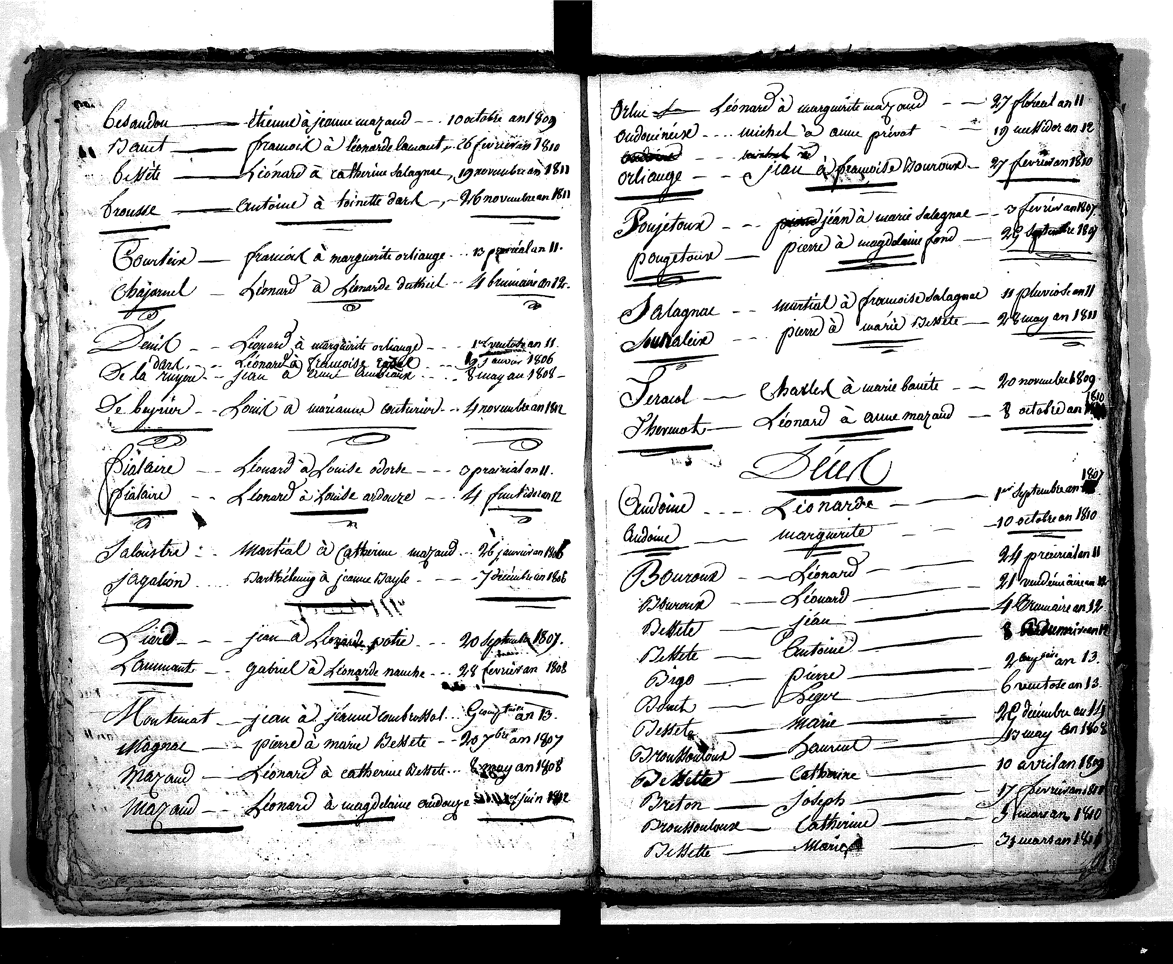 Besandou — étienne à jeanne mazaud - - - 10 octobre an 1809
Bauet — francois à léonarde Lamant, - 26 février an 1810
Bessete — Léonard à catherine Salagnac, 19 novembre an 1811
Brousse — antoine à toinette dark - , - 26 novembre an 1811
Courteix — francois à marguerite orliange - - 13 prairial an 11.
Chajornel — Léonard à Léonarde duthiel - - - 4 brumaire an 12.
Deuil — Léonard à marguerite orliange - - an 11.
dark. Léonard à francoise 19 janvier 1806
De la - jean à anne - - 8 may an 1808 -
De beynier - - Louis a marianne couturier - - 4 novembre an 1812
fialaire - - Léonard à Louise odorse - - - prairial an 11.
fialaire - - Léonard à Louise ardouze - - - 4 fructidor an 12
Jaloustre : - martial à Catherine mazaud - - 26 janvier an
jagalion . . . Barthélemy à jeanne Bayle - - - - 7 décembre an 1806
Liard - - - jean à Léonarde - - 20 septembre 1807.
Lammante - gabriel à Léonarde nauche - - - 28 février an 1808
Montemat - jean à jeanne combrossol . . . an 13.
Magnac — pierre à marie Bessete - - 20 7bre an 1807
Mazaud - - Léonard à catherine Bessete - - - 8 may an 1808
Mazaud — Léonard à magdelaine audouze juin
Orluc — Léonard à marguerite mazaud - - - 27 floréal an 11
Oudouineuse - - - - michel à anne prévot - - 19 messidor an 12
Orliange - - - jean à françoise Bouroux - - 27 février an 1810
Poujetoux - - - jean à marie Salagnac - - - 3 février an 1807.
pougetoux - - - pierre à magdelaine fond - - 29
Salagnac - - martial à francoise Salagnac 11 pluviose an 11
pierre à marie Bessete - - 28 may an 1811
Teracol — Charles à marie bauete - - 20 novembre 1809
Thermat — Léonard à anne mazaud - - 8 octobre an 1810
Décès
Oudoine - - - Léonarde — 1er septembre an 1807
Audoine - - - marguerite — 10 octobre an 1810
Bouroux — Léonard — 24 prairial an 11
Bouroux — Léonard — 21 vendémiaire an 12
Bessete - - - jean — 4 Brumaire an 12.
Bessete — Antoine — 8
Brgo — pierre — an 13.
Bouet — Leger — 6 ventose an 13.
Bessete — Marie — 29 décembre an 14
Broussouloux — Laurent — 13 may an 1808
Bessette — Catherine — 10 avril an 1809
Breton — Joseph — 17 février an 1810
Broussouloux — Catherine — mars an 1810
Bessette — Marie — 31 mars an